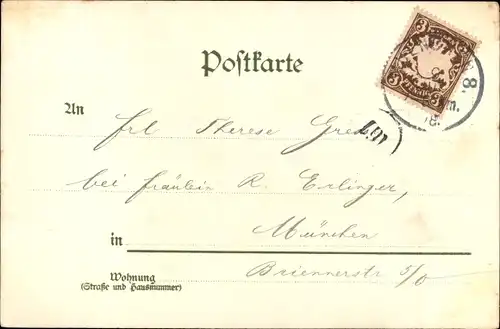 Postkarte
An Frl Therese
bei Fräulein R. Erlinger,
in München
Wohnung Briennerstr 3/0
(Straße und Hausnummer)
3 3
8.